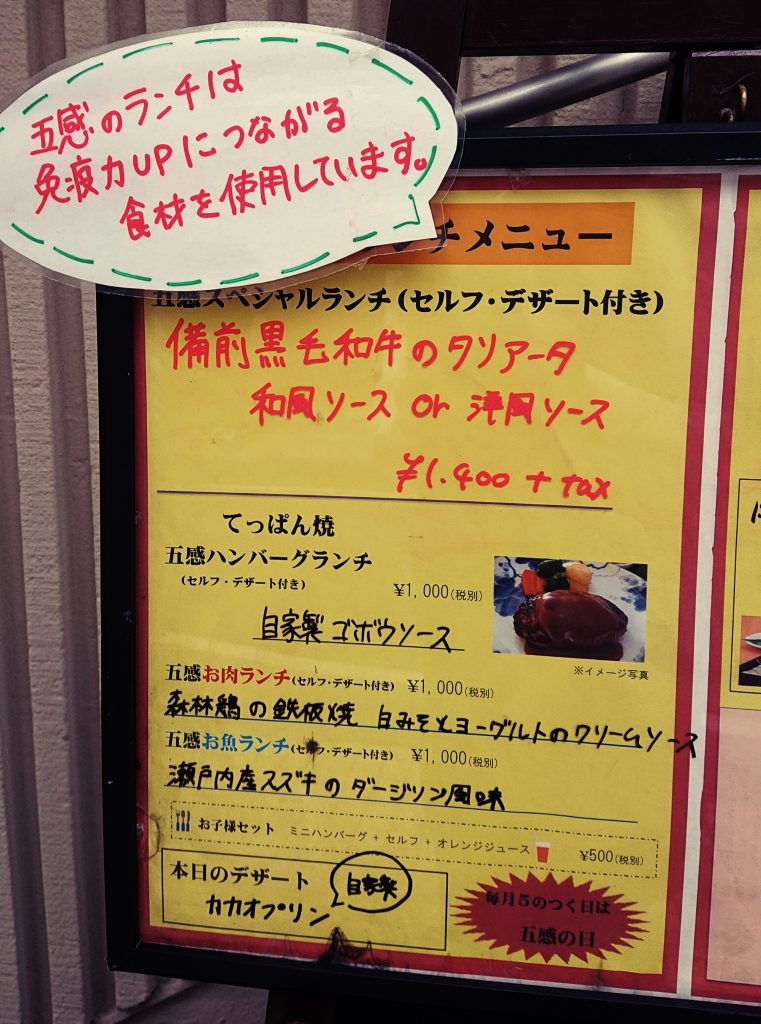 五感のランチは
免疫力UPにつながる
食材を使用しています。
チメニュー
五感スペシャルランチ(セルフ・デザート付き)
備前黒毛和牛のタリアータ
和風ソース or 洋風ソース
¥1.400 + tax
てっぱん焼
五感ハンバーグランチ
(セルフ・デザート付き)
¥1,000(税別)
自家製ゴボウソース
※イメージ写真
五感お肉ランチ(セルフ・デザート付き) ¥1,000(税別)
森林鶏の鉄板焼 白みそとヨーグルトのクリームソース
五感お魚ランチ(セルフ・デザート付き) ¥1,000(税別)
瀬戸内産スズキのダージリン風味
お子様セット ミニハンバーグ + セルフ + オレンジジュース ¥500(税別)
本日のデザート
自家製
カカオプリン
毎月5のつく日は
五感の日